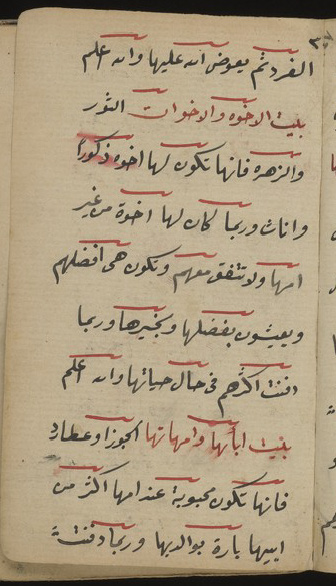 الفرد ثم يعوض الله عليها والله اعلم
بيت الاخوه والاخوات الثور
والزهره فانها تكون لها اخوه ذكورا
واناث وربما كان لها اخوة من غير
امها ولا تتفق معهم وتكون هى افضلهم
ويعيشون بفضلها وبخيرها وربما
دفنت اكثرهم فى حال حياتها والله اعلم
بيت ابائها وامهاتها الجوزا وعطارد
فانها تكون محبوبة عند امها اكثر من
ابيها بارة بوالديها وربما دفنت